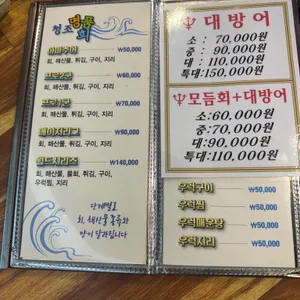 청조명품회
아마추어 ₩50,000
회, 해산물, 튀김, 구이, 지리
프로2군 ₩60,000
회, 해산물, 튀김, 구이, 지리
프로1군 ₩70,000
회, 해산물, 튀김, 구이, 지리
메이저리그 ₩90,000
회, 해산물, 튀김, 구이, 지리
월드시리즈 ₩140,000
회, 해산물, 물회, 튀김, 구이,
우럭찜, 지리
단계별로
회, 해산물 종류와
양이 달라집니다
대방어
소 : 70,000원
중 : 90,000원
대 : 110,000원
특대:150,000원
모듬회+대방어
소:60,000원
중:70,000원
대:90,000원
특대:110,000원
우럭구이 ₩50,000
우럭찜 ₩50,000
우럭매운탕 ₩50,000
우럭지리 ₩50,000